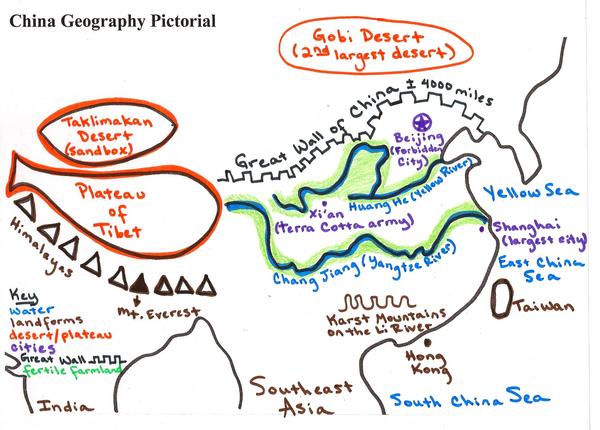 China Geography Pictorial
Gobi Desert
(2nd largest desert)
Taklimakan
Desert
(sandbox)
Great Wall of China ± 4000 miles
Beijing
(Forbidden
City)
Plateau
of
Tibet
Huang He (Yellow River)
Yellow Sea
Xi'an
(terra cotta army)
Shanghai
(largest city)
Himalayas
Chang Jiang (Yangtze River)
East China
Sea
Key
water
landforms
desert/plateau
cities
Great Wall
fertile farmland
Mt. Everest
Karst Mountains
on the Li River
Taiwan
Hong
Kong
India
Southeast
Asia
South China Sea